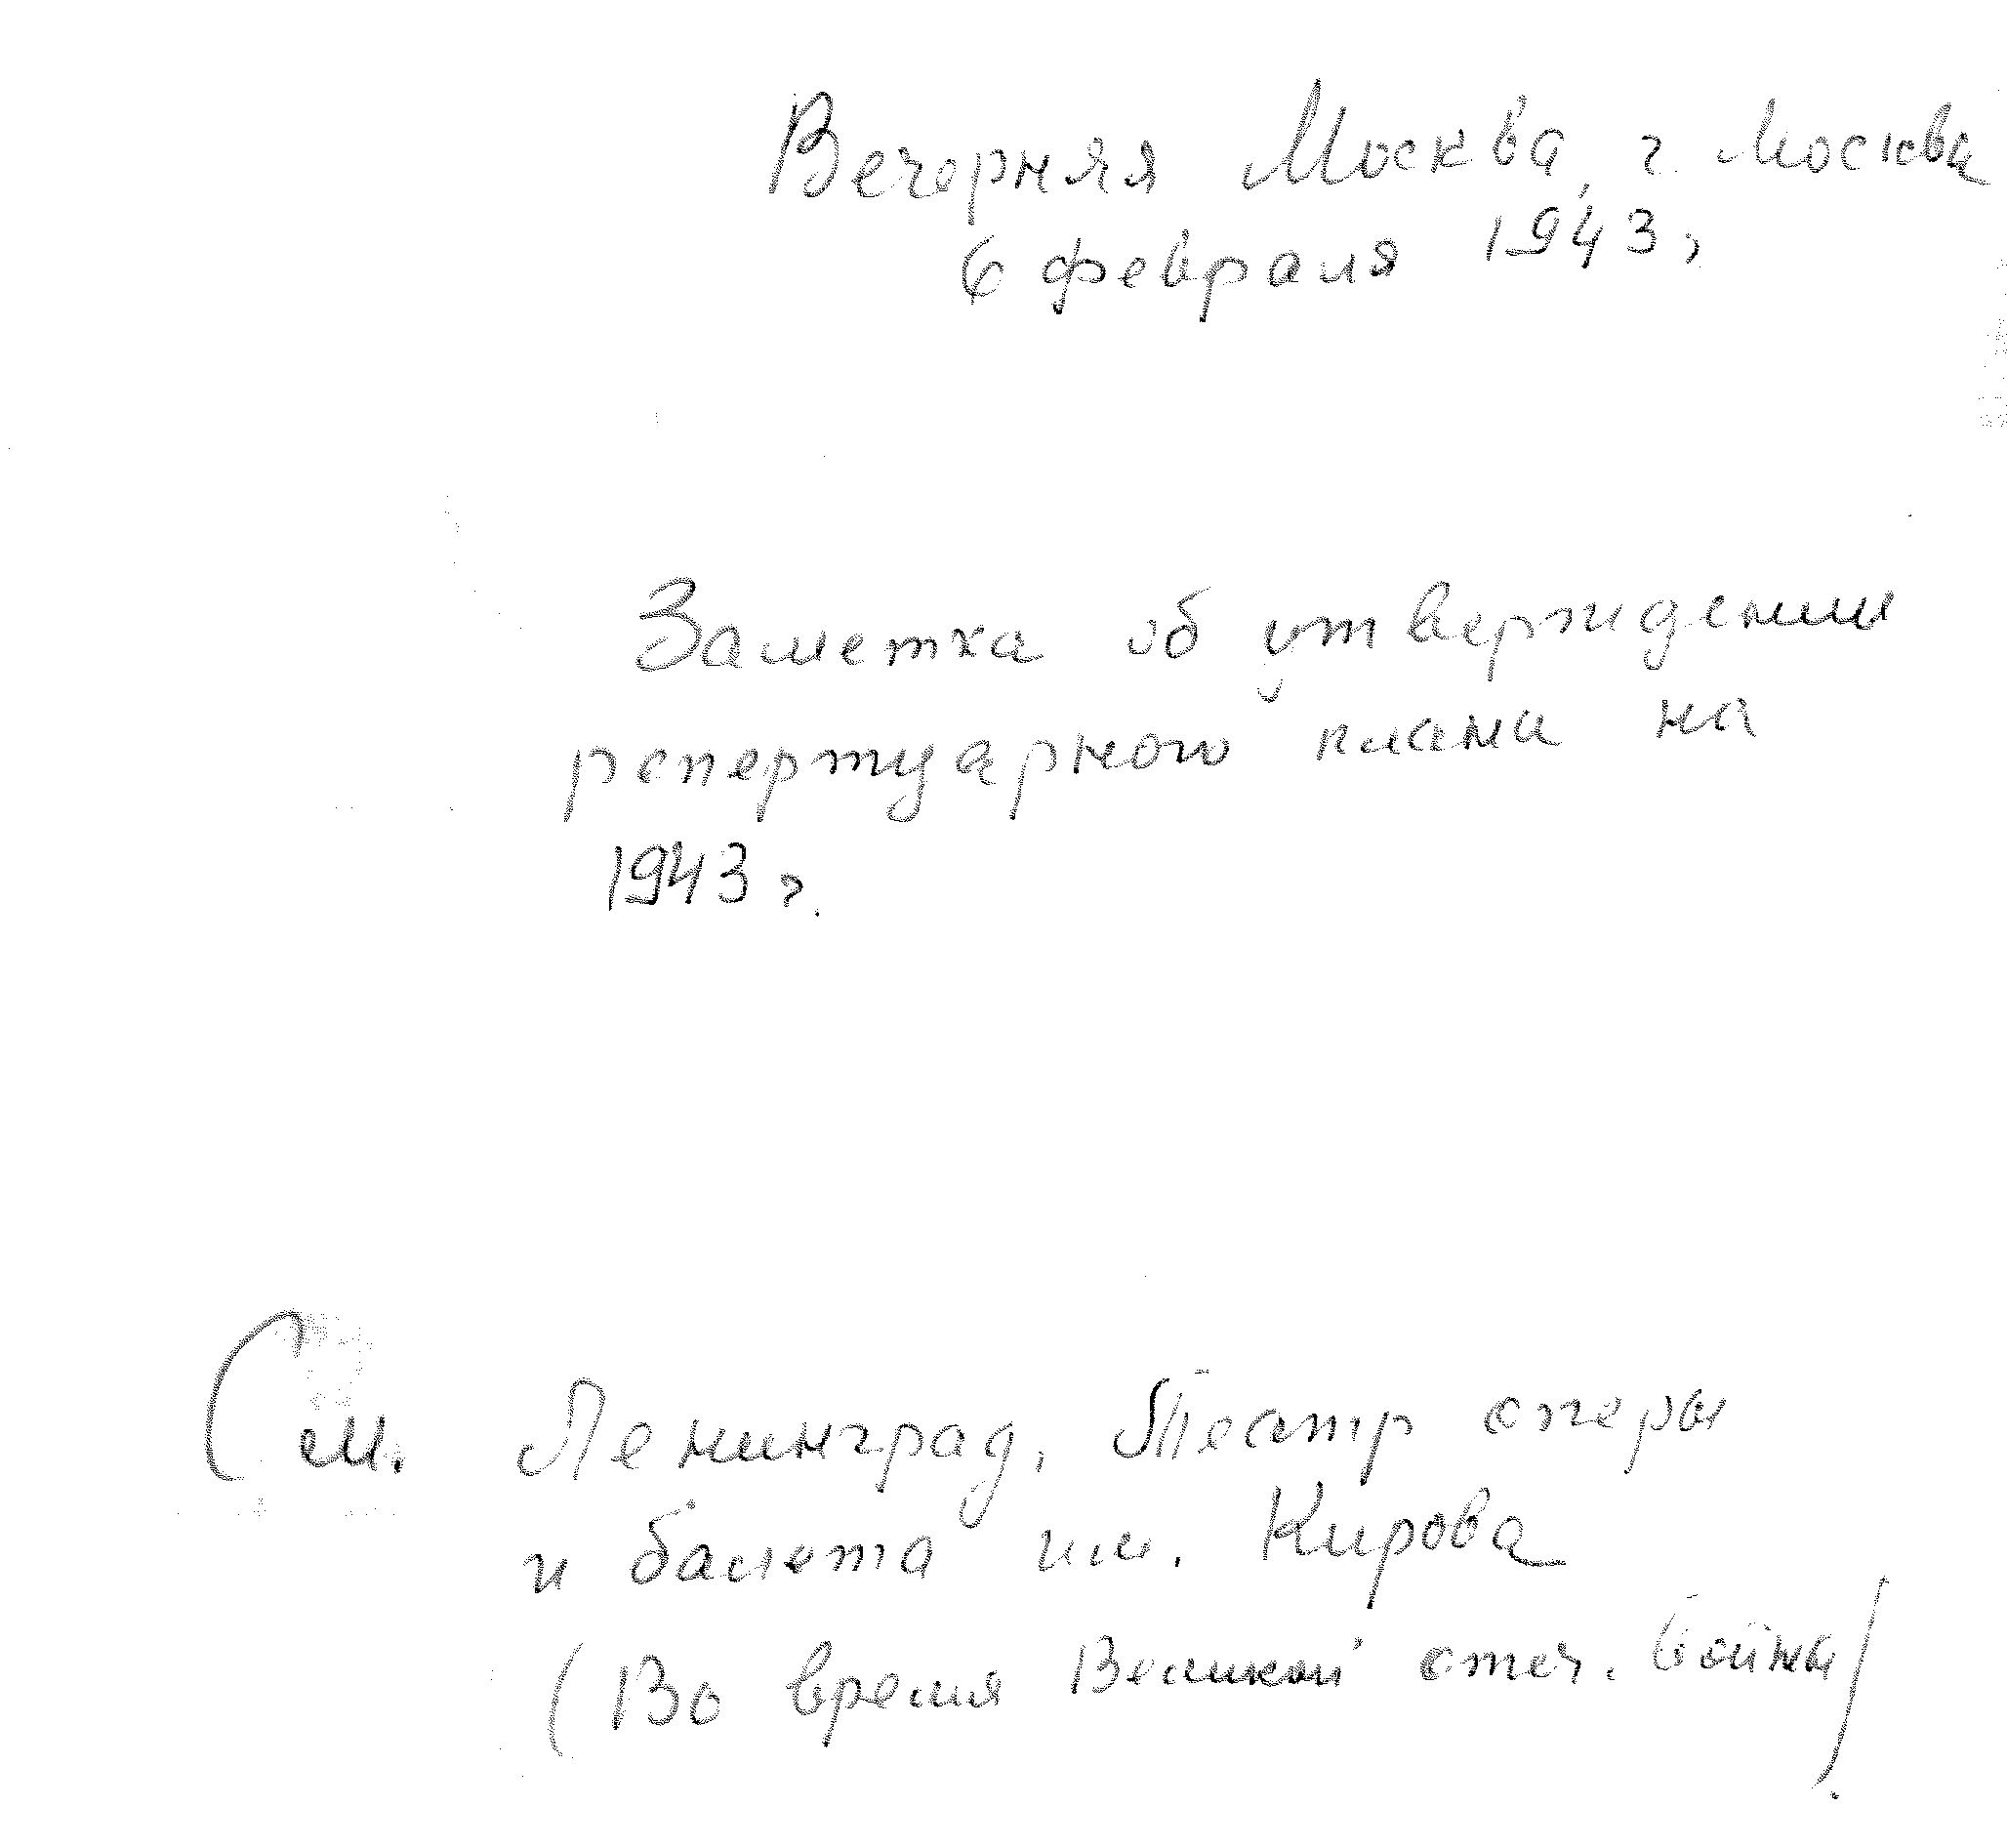 Вечерняя Москва, г. Москва
6 февраля 1943 г.
Заметка об утверждении
репертуарного плана на
1943 г.
См. Ленинград, Театр оперы
и балета им. Кирова
(Во время Великой отеч. войны)